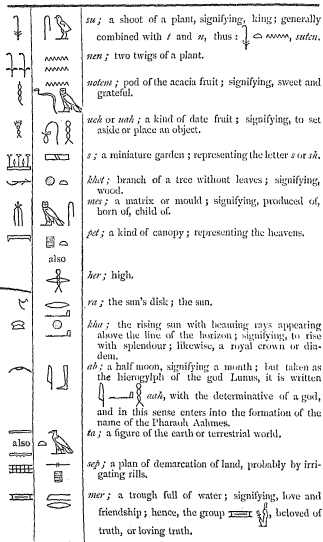 su; a shoot of a plant, signifying, king; generally
combined with t and n, thus: , suten.
nen; two twigs of a plant.
notem; pod of the acacia fruit; signifying, sweet and
grateful.
uch or uah; a kind of date fruit; signifying, to set
aside or place an object.
s; a miniature garden; representing the letter s or sh.
khet; branch of a tree without leaves; signifying,
wood.
mes; a matrix or mould; signifying, produced of,
born of, child of.
pet; a kind of canopy; representing the heavens.
also
her; high.
ra; the sun's disk; the sun.
kha; the rising sun with beaming rays appearing
above the line of the horizon; signifying, to rise
with splendour; likewise, a royal crown or dia-
dem.
ab; a half moon, signifying a month; but taken as
the hieroglyph of the god Lunus, it is written
aah, with the determinative of a god,
and in this sense enters into the formation of the
name of the Pharaoh Aahmes.
ta; a figure of the earth or terrestrial world.
also
sep; a plan of demarcation of land, probably by irri-
gating rills.
mer; a trough full of water; signifying, love and
friendship; hence, the group , beloved of
truth, or loving truth.